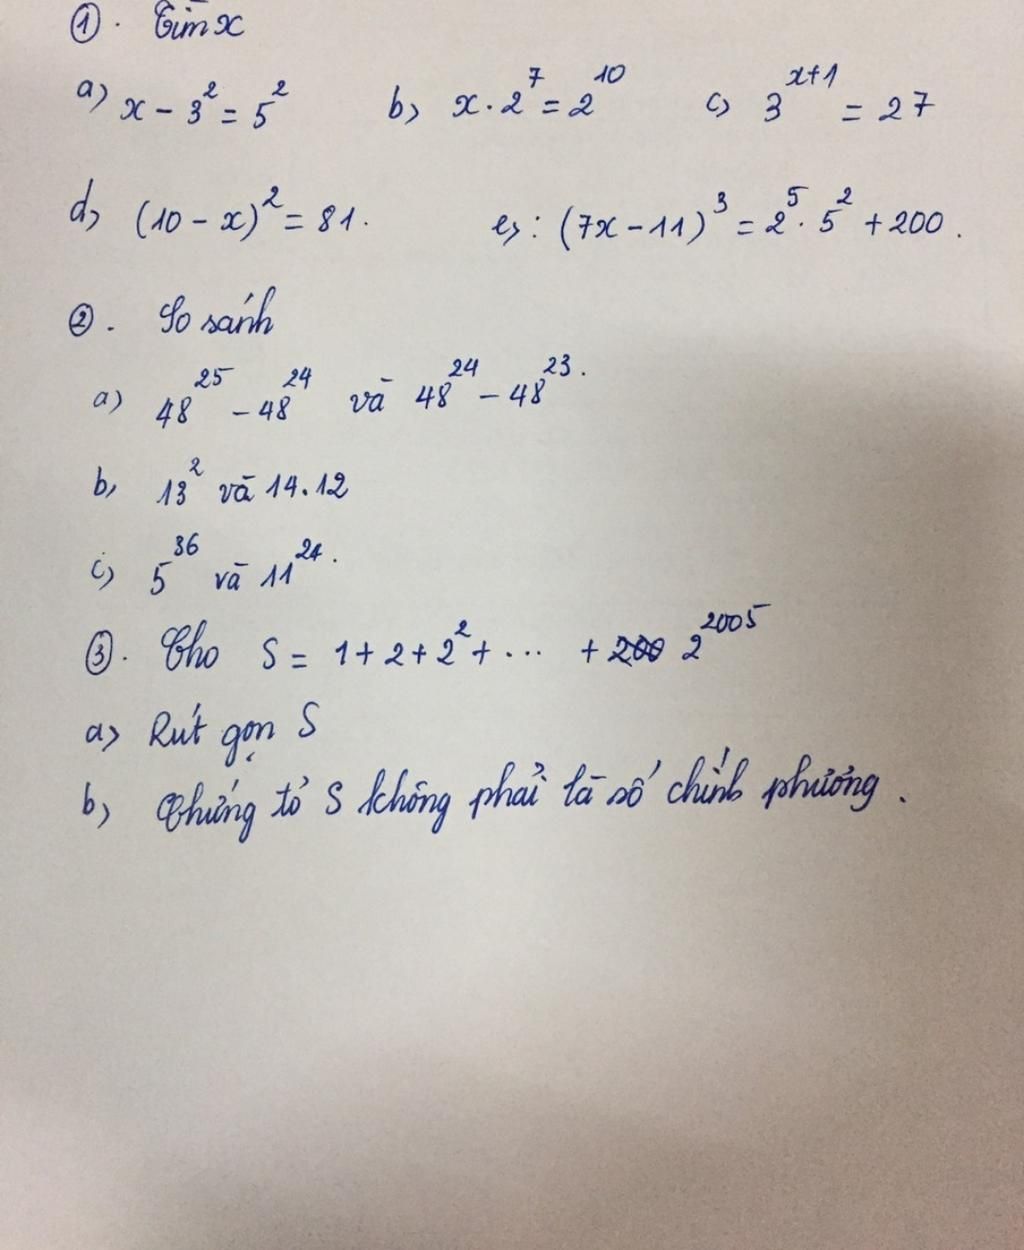 ①. Tìm x
a) x - 3² = 5² b) x . 2⁷ = 2¹⁰ c) 3ˣ⁺¹ = 27
d) (10 - x)² = 81. e) : (7x - 11)³ = 2⁵ . 5² + 200.
②. So sánh
a) 48²⁵ - 48²⁴ và 48²⁴ - 48²³.
b) 13² và 14.12
c) 5³⁶ và 11²⁴.
③. Cho S = 1 + 2 + 2² + ... + 2²⁰⁰⁵
a) Rút gọn S
b) Chứng tỏ S không phải là số chính phương.